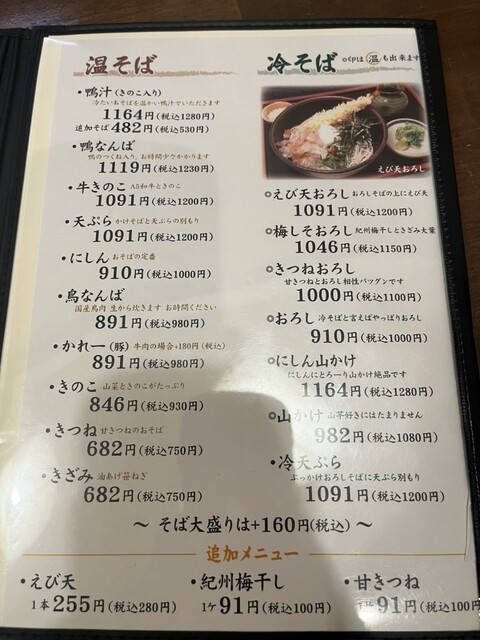 温そば
・鴨汁(きのこ入り)
冷たいおそばを温かい鴨汁でいただきます
1164円(税込1280円)
追加そば482円(税込530円)
・鴨なんば
鴨のつくね入り、お時間少々かかります
1119円(税込1230円)
・牛きのこ A5和牛ときのこ
1091円(税込1200円)
・天ぷら かけそばと天ぷらの別もり
1091円(税込1200円)
・にしん おそばの定番
910円(税込1000円)
・鳥なんば
国産鳥肉 生から炊きます お時間ください
891円(税込980円)
・かれー(豚) 牛肉の場合+180円(税込)
891円(税込980円)
・きのこ 山菜ときのこがたっぷり
846円(税込930円)
・きつね 甘きつねのおそば
682円(税込750円)
・きざみ 油あげ笹ねぎ
682円(税込750円)
冷そば ◎印は温も出来ます
えび天おろし
◎えび天おろし おろしそばの上にえび天
1091円(税込1200円)
◎梅しそおろし 紀州梅干しときざみ大葉
1046円(税込1150円)
◎きつねおろし
甘きつねとおろし相性バツグンです
1000円(税込1100円)
◎おろし 冷そばと言えばやっぱりおろし
910円(税込1000円)
◎にしん山かけ
にしんにとろーり山かけ絶品です
1164円(税込1280円)
◎山かけ 山芋好きにはたまりません
982円(税込1080円)
・冷天ぷら
ぶっかけおろしそばに天ぷら別もり
1091円(税込1200円)
～ そば大盛りは+160円(税込) ～
追加メニュー
・えび天
1本255円(税込280円)
・紀州梅干し
1ケ91円(税込100円)
・甘きつね
91円(税込100円